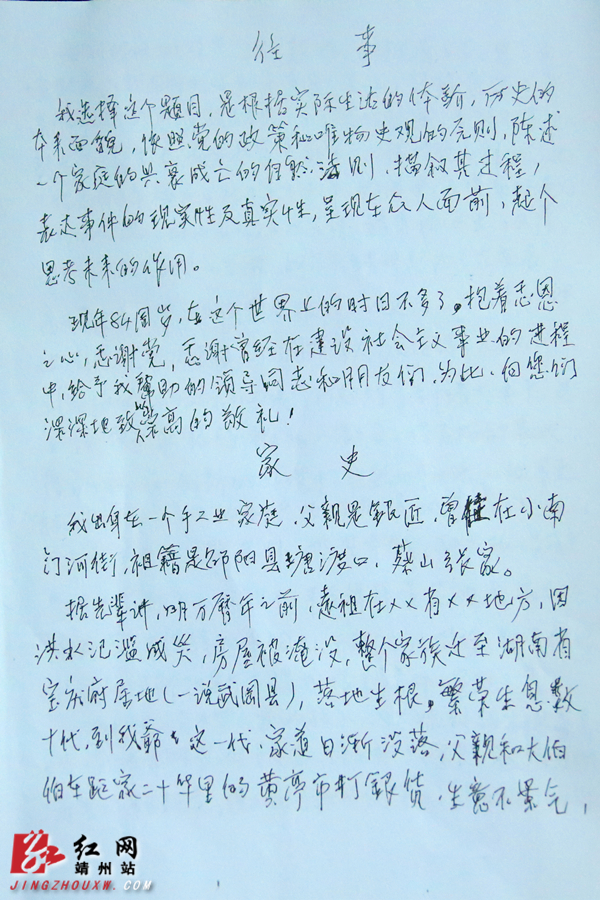 往 事
我选择这个题目，是根据实际生活的体验，历史的
本来面貌，依照党的政策和唯物史观的原则，陈述
一个家庭的兴衰成亡的自然法则，描叙其过程，
表达事件的现实性及真实性，呈现在众人面前，起个
思考未来的作用。
现年84周岁，在这个世界上的时日不多了。抱着感恩
之心，感谢党，感谢曾经在建设社会主义事业的进程
中，给予我帮助的领导同志和朋友们，为此、向您们
深深地致崇高的敬礼！
家 史
我出身在一个手工业家庭，父亲是银匠，曾住在小南
门河街，祖籍是邵阳县塘渡口，蔡山张家。
据先辈讲，明万历年之前，远祖在××有××地方，因
洪水泛滥成灾，房屋被淹没，整个家族迁至湖南省
宝庆府居地（一说武冈县），落地生根。繁荣生息数
十代，到我爷爷这一代、家道日渐没落，父亲和大伯
伯在距家二十华里的黄亭市打银货，生意不景气，
红网
靖州站
JINGZHOUXW.COM